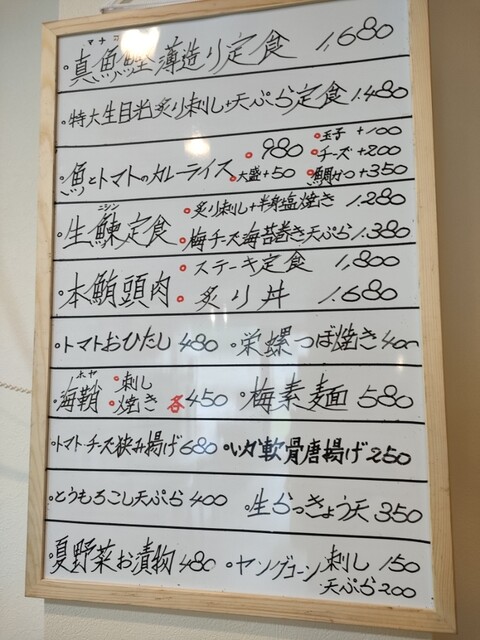 ・真魚鰹薄造り定食 1,680
・特大生目光炙り刺し+天ぷら定食 1,480
・魚とトマトのカレーライス ・980 ・玉子 +100
・大盛+50 ・チーズ+200
・鯛カツ+350
ニシン
・生鰊定食 ・炙り刺し+半身塩焼き 1,280
・梅チーズ海苔巻き天ぷら 1,380
・本鮪頭肉 ・ステーキ定食 1,800
・炙り丼 1,680
・トマトおひたし 480 ・栄螺つぼ焼き 400
ホヤ
・海鞘 ・刺し ・焼き 各450 ・梅素麺 580
・トマトチーズ挟み揚げ 680 ・いか軟骨唐揚げ 250
・とうもろこし天ぷら 400 生らっきょう天 350
・夏野菜お漬物 480 ・ヤングコーン 刺し 150
天ぷら 200